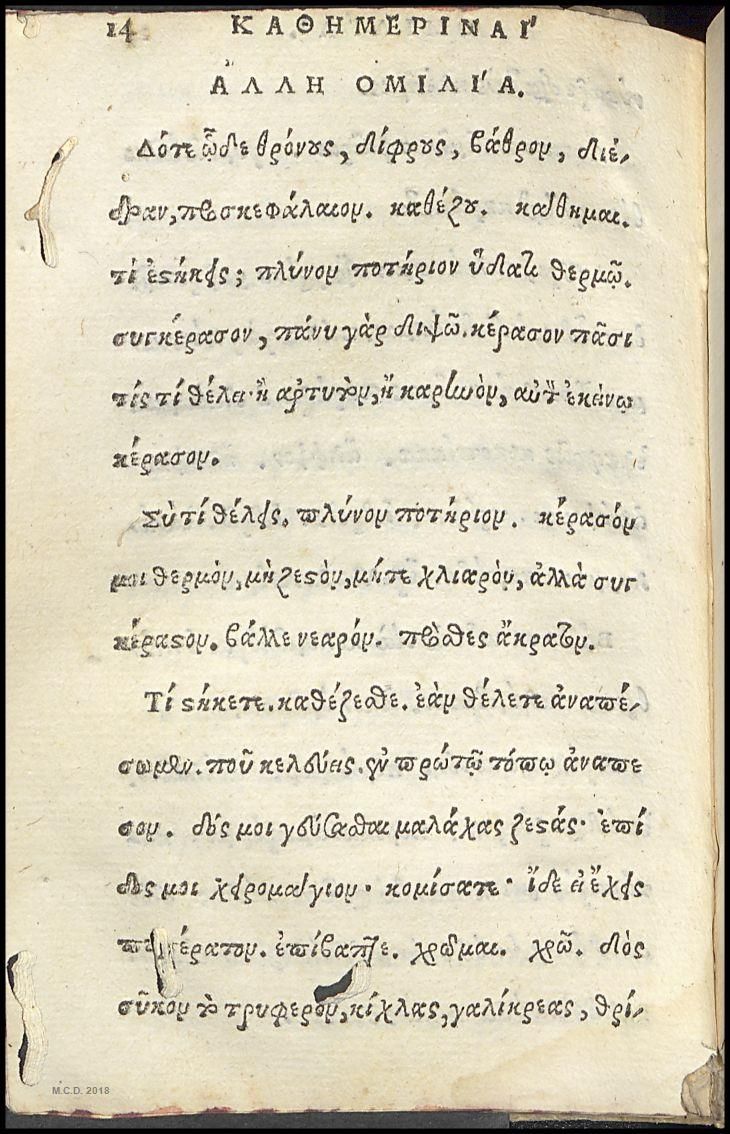 14 ΚΑΘΗΜΕΡΙΝΑΙ΄
ΑΛΛΗ ΟΜΙΛΙ΄Α.
Δότε ὧδε θρόνους, δίφρους, βάθρον, διέ-
δραν, προσκεφάλαιον. καθέζου. κάθημαι.
τί ἐστήκεις; πλύνον ποτήριον ὕδατι θερμῷ.
συγκέρασον, πάνυ γὰρ διψῶ. κέρασον πᾶσι
τίς τί θέλει· ἢ ἀρτυτὸν, ἢ καρίωὸν, αὐτῷ ἐκείνῳ
κέρασον.
Σὺ τί θέλεις. πλύνον ποτήριον. κέρασόν
μοι θερμὸν, μὴ ζεστὸν, μήτε χλιαρὸν, ἀλλὰ συγ
κέραστον. βάλλε νεαρόν. πρόσθες ἄκρατον.
Τί στήκετε. καθέζεσθε. ἐὰν θέλετε ἀναπέ-
σωμεν. ποῦ κελεύεις. ἐν πρώτῳ τόπῳ ἀναπε
σον. δός μοι γεύσασθαι μαλάχας ζεστάς· ἐπί
δος μοι χειρομάγιον· κομίσατε· ἴδε εἰ ἔχεις
ἐπίβαπτε. χρῶμαι. χρῶ. δὸς
σῦκον τὸ τρυφερὸν, κίχλας, γαλίκρεας, θρί-
M.C.D. 2018